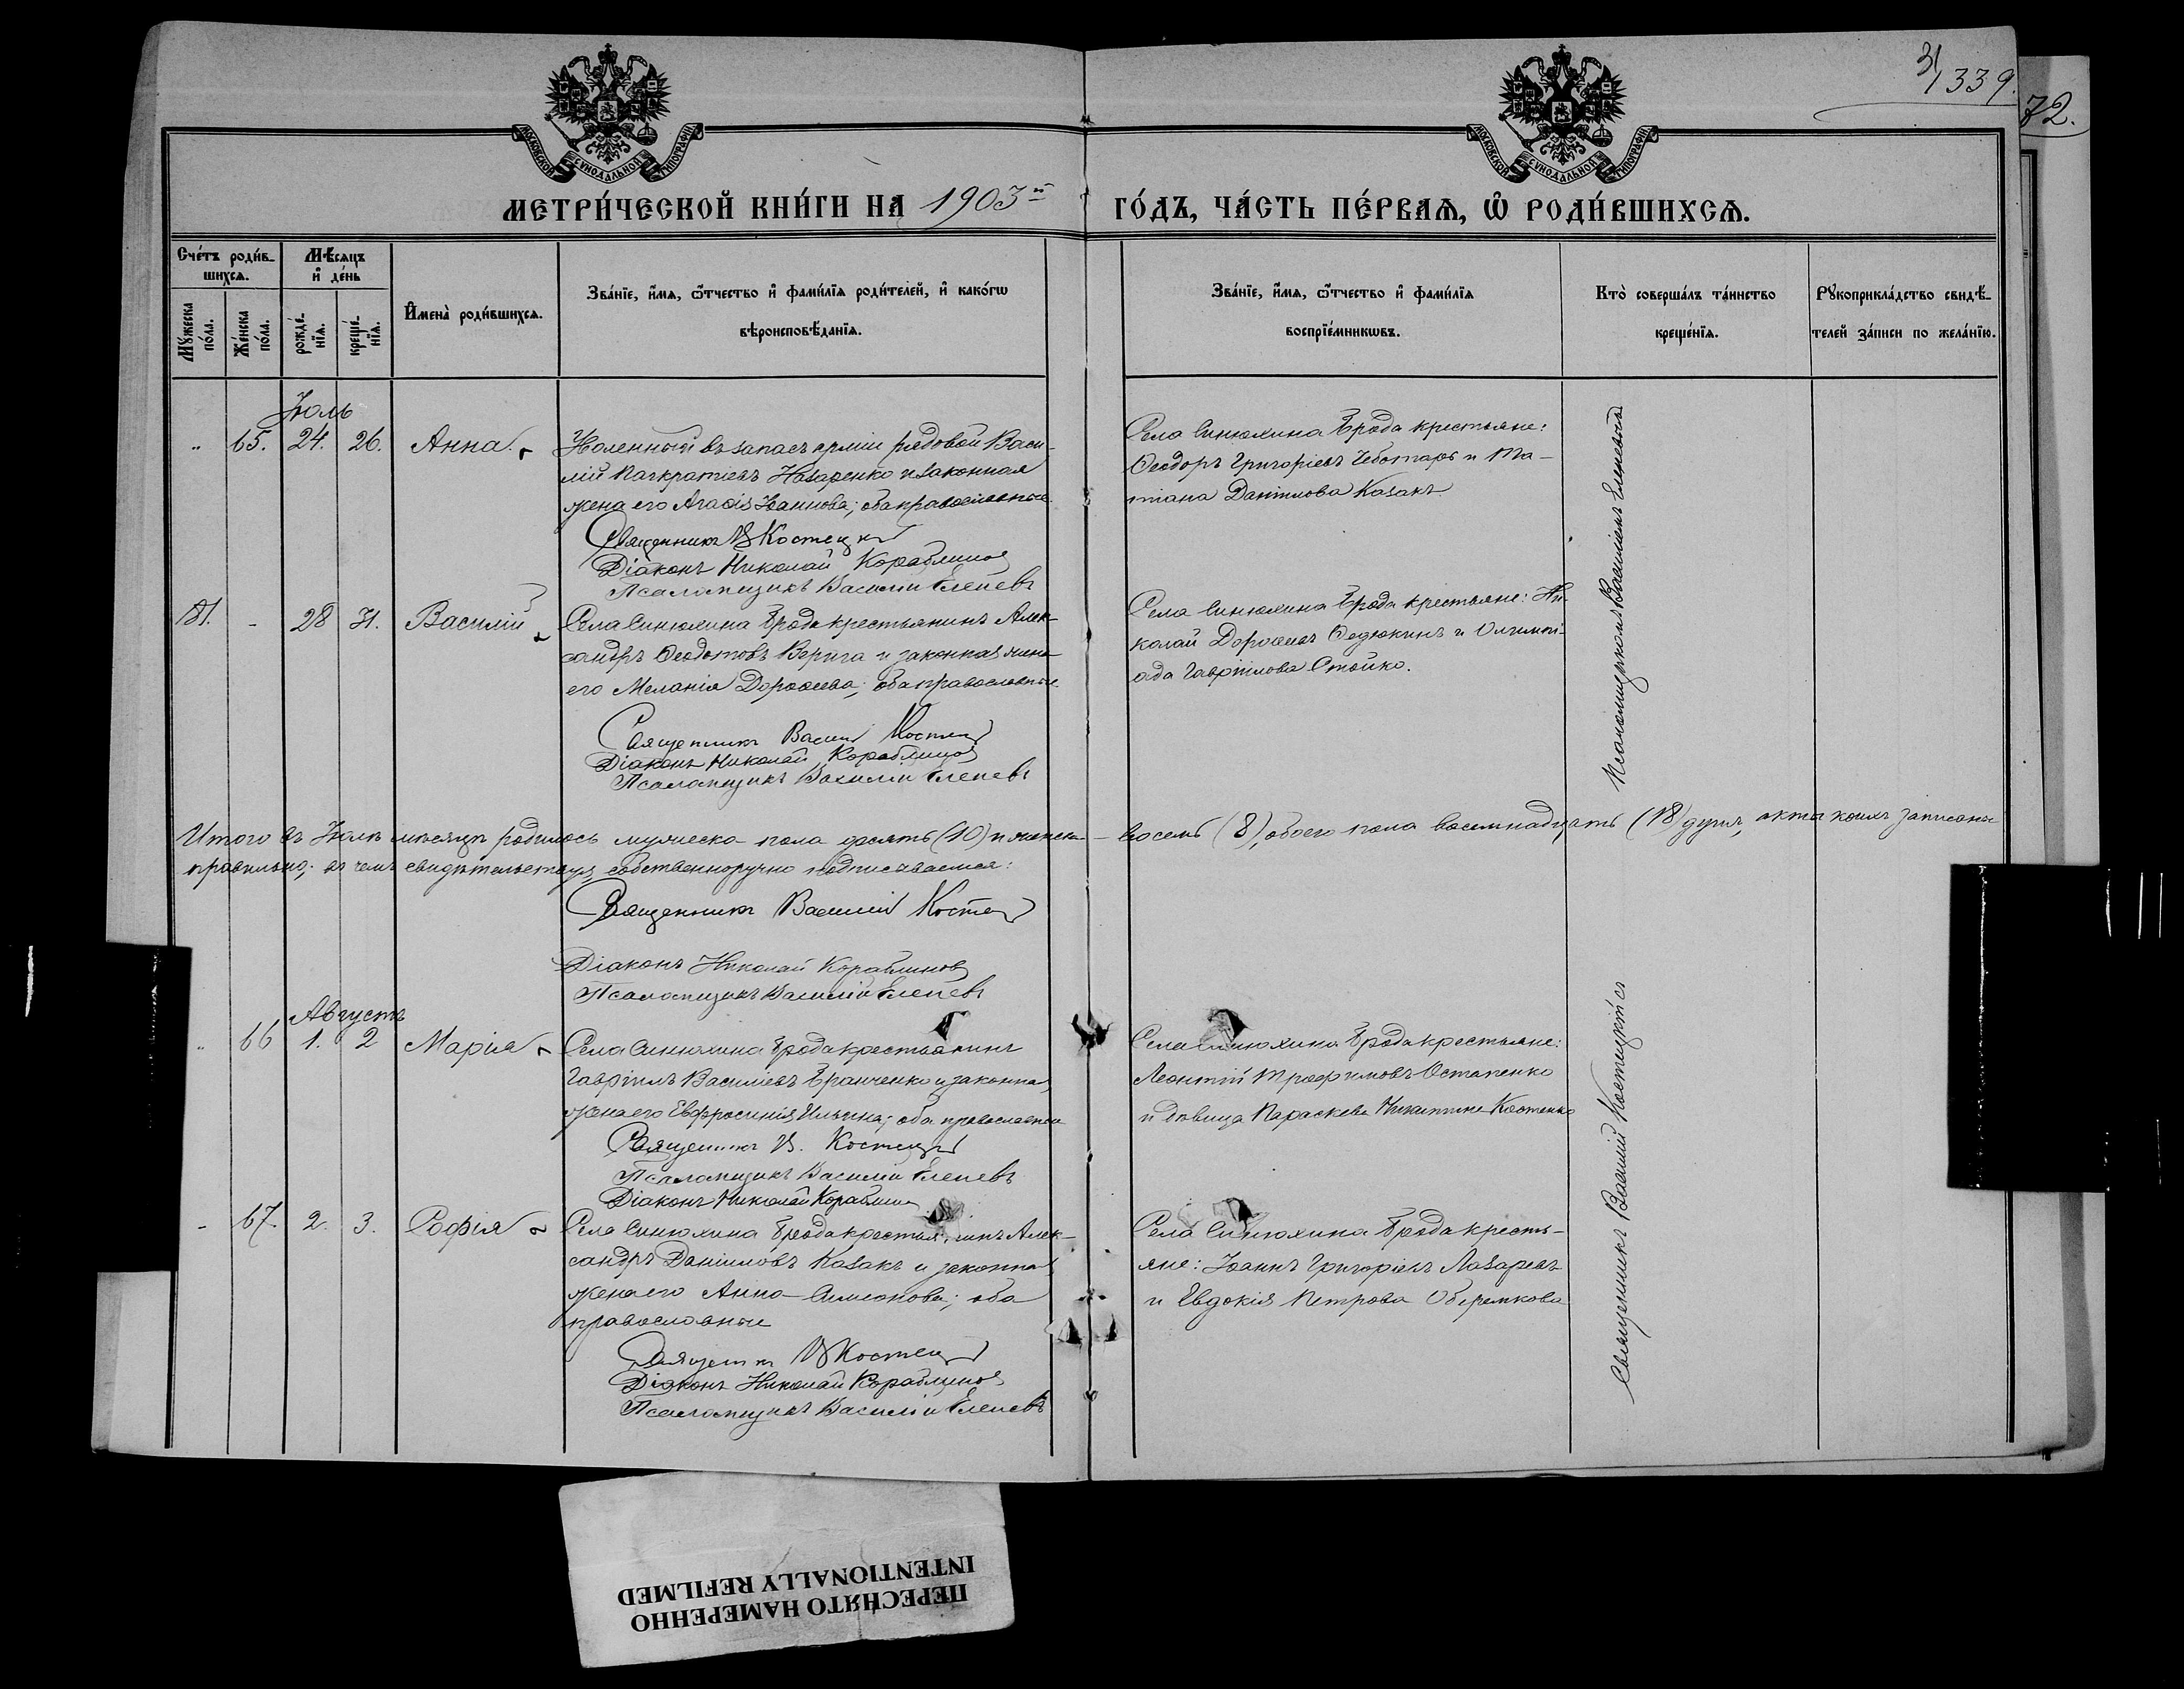 31/339.
72.
МОСКОВСКОЙ СѴНОДАЛЬНОЙ ТИПОГРАФІИ
МОСКОВСКОЙ СѴНОДАЛЬНОЙ ТИПОГРАФІИ
МЕТРИ́ЧЕСКОЙ КНИ́ГИ НА 1903й ГО́ДЪ, ЧА́СТЬ ПЕ́РВАѦ, Ѡ РОДИ́ВШИХСѦ.
Сче́тъ роди́в-
шихсѧ.
Мꙋжеска по́ла.
Же́нска по́ла.
Мѣ́сѧцъ
и҆ де́нь
рожде́-
нїѧ.
креще́-
нїѧ.
И҆мена̀ роди́вшихсѧ.
Зва́нїе, и҆́мѧ, ѻ҆́тчество и҆ фами́лїѧ роди́телей, и҆ како́гѡ
вѣроисповѣ́данїѧ.
Зва́нїе, и҆́мѧ, ѻ҆́тчество и҆ фами́лїѧ
воспрїе́мникѡвъ.
Кто̀ соверша́лъ та́инство
креще́нїѧ.
Рꙋкоприкла́дство свидѣ́-
телей за́писи по жела́нїю.
Іюль
" 65. 24. 26. Анна.
Уволенный въ запасъ арміи рядовой Васи-
лій Панкратіевъ Назаренко и законная
жена его Агаѳія Іоаннова; оба православные
Священникъ В Костецкій
Діаконъ Николай Кораблиновъ
Псаломщикъ Василій Елепевъ
Села Синюхина Брода крестьяне:
Ѳеодоръ Григоріевъ Чеботарь и Та-
тіана Даніилова Казакъ
Псаломщикомъ Василіемъ Елепевымъ
81. - 28 31. Василій
Села Синюхина Брода крестьянинъ Алек-
сандръ Ѳеодотовъ Верига и законная жена
его Меланія Дороѳеева; оба православные
Священникъ Василій Костецкій
Діаконъ Николай Кораблиновъ
Псаломщикъ Василій Елепевъ
Села Синюхина Брода крестьяне: Ни-
колай Дороѳеевъ Федюкинъ и Олимпі-
ада Гавріилова Стойко.
Итого въ Іюлѣ мѣсяцѣ родилось мужеска пола десять (10) и женска - восемь (8), обоего пола восемнадцать (18) душъ, акты коихъ записаны
правильно; въ чемъ свидѣтельствуя, собственноручно подписываемся:
Священникъ Василій Костецкій
Діаконъ Николай Кораблиновъ
Псаломщикъ Василій Елепевъ
Августъ
" 66 1. 2 Марія
Села Синюхина Брода крестьянинъ
Гавріилъ Василіевъ Бранченко и законная
жена его Евфросинія Ильина; оба православные
Священникъ В. Костецкій
Псаломщикъ Василій Елепевъ
Діаконъ Николай Кораблиновъ
Села Синюхина Брода крестьяне:
Леонтій Трофимовъ Остапенко
и дѣвица Параскева Никитина Костенко
Священникъ Василій Костецкій съ
- 67. 2. 3. Софія
Села Синюхина Брода крестьянинъ Алек-
сандръ Даніиловъ Казакъ и законная
жена его Анна Симеонова; оба
православные
Священникъ В Костецкій
Діаконъ Николай Кораблиновъ
Псаломщикъ Василій Елепевъ
Села Синюхина Брода кресть-
яне: Іоаннъ Григоріевъ Лазаревъ
и Евдокія Петрова Обремкова
ПЕРЕСНЯТО НАМЕРЕННО
INTENTIONALLY REFILMED